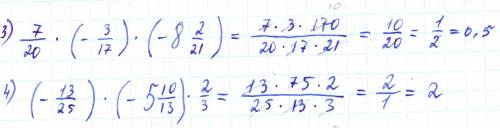 3) 7/20 · (- 3/17) · (-8 2/21) = 7·3·170/20·17·21 = 10/20 = 1/2 = 0,5
10
4) (- 13/25) · (- 5 10/13) · 2/3 = 13·75·2/25·13·3 = 2/1 = 2